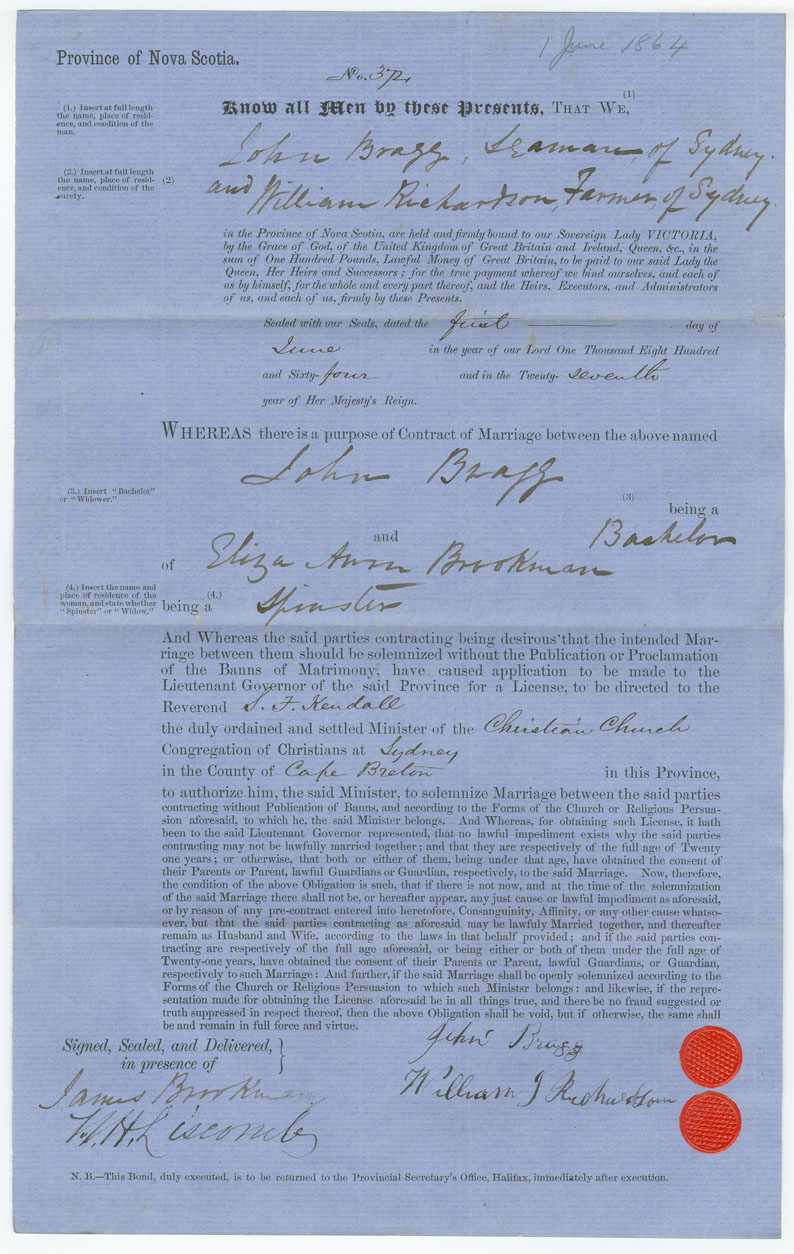 1 June 1864
Province of Nova Scotia.
No. 372
(1.) Insert at full length
the name, place of resid-
ence, and condition of the
man.
Know all Men by these Presents, THAT WE, (1)
John Bragg, Seaman, of Sydney.
(2.) Insert at full length
the name, place of resid-
ence, and condition of the
surety.
(2) and William Richardson, Farmer, of Sydney.
in the Province of Nova Scotia, are held and firmly bound to our Sovereign Lady VICTORIA,
by the Grace of God, of the United Kingdom of Great Britain and Ireland, Queen, &c., in the
sum of One Hundred Pounds, Lawful Money of Great Britain, to be paid to our said Lady the
Queen, Her Heirs and Successors; for the true payment whereof we bind ourselves, and each of
us by himself, for the whole and every part thereof, and the Heirs, Executors, and Administrators
of us, and each of us, firmly by these Presents.
Sealed with our Seals, dated the first day of
June in the year of our Lord One Thousand Eight Hundred
and Sixty-four and in the Twenty-seventh
year of Her Majesty's Reign.
WHEREAS there is a purpose of Contract of Marriage between the above named
John Bragg
(3.) Insert "Bachelor"
or "Widower."
(3)
being a
and Bachelor
of Eliza Ann Brookman
(4.) Insert the name and
place of residence of the
woman, and state whether
"Spinster" or "Widow."
being a (4.) Spinster
And Whereas the said parties contracting being desirous that the intended Mar-
riage between them should be solemnized without the Publication or Proclamation
of the Banns of Matrimony, have caused application to be made to the
Lieutenant Governor of the said Province for a License, to be directed to the
Reverend S. F. Kendall
the duly ordained and settled Minister of the Christian Church
Congregation of Christians at Sydney
in the County of Cape Breton in this Province,
to authorize him, the said Minister, to solemnize Marriage between the said parties
contracting without Publication of Banns, and according to the Forms of the Church or Religious Persua-
sion aforesaid, to which he, the said Minister belongs. And Whereas, for obtaining such License, it hath
been to the said Lieutenant Governor represented, that no lawful impediment exists why the said parties
contracting may not be lawfully married together; and that they are respectively of the full age of Twenty
one years; or otherwise, that both or either of them, being under that age, have obtained the consent of
their Parents or Parent, lawful Guardians or Guardian, respectively, to the said Marriage. Now, therefore,
the condition of the above Obligation is such, that if there is not now, and at the time of the solemnization
of the said Marriage there shall not be, or hereafter appear, any just cause or lawful impediment as aforesaid,
or by reason of any pre-contract entered into heretofore, Consanguinity, Affinity, or any other cause whatso-
ever, but that the said parties contracting as aforesaid may be lawfuly Married together, and thereafter
remain as Husband and Wife, according to the laws in that behalf provided; and if the said parties con-
tracting are respectively of the full age aforesaid, or being either or both of them under the full age of
Twenty-one years, have obtained the consent of their Parents or Parent, lawful Guardians, or Guardian,
respectively to such Marriage: And further, if the said Marriage shall be openly solemnized according to the
Forms of the Church or Religious Persuasion to which such Minister belongs: and likewise, if the repre-
sentation made for obtaining the License aforesaid be in all things true, and there be no fraud suggested or
truth suppressed in respect thereof, then the above Obligation shall be void, but if otherwise, the same shall
be and remain in full force and virtue.
Signed, Sealed, and Delivered,
in presence of
John Bragg
William J Richardson
James Brookman
W. H. Liscomb
N. B.—This Bond, duly executed, is to be returned to the Provincial Secretary's Office, Halifax, immediately after execution.